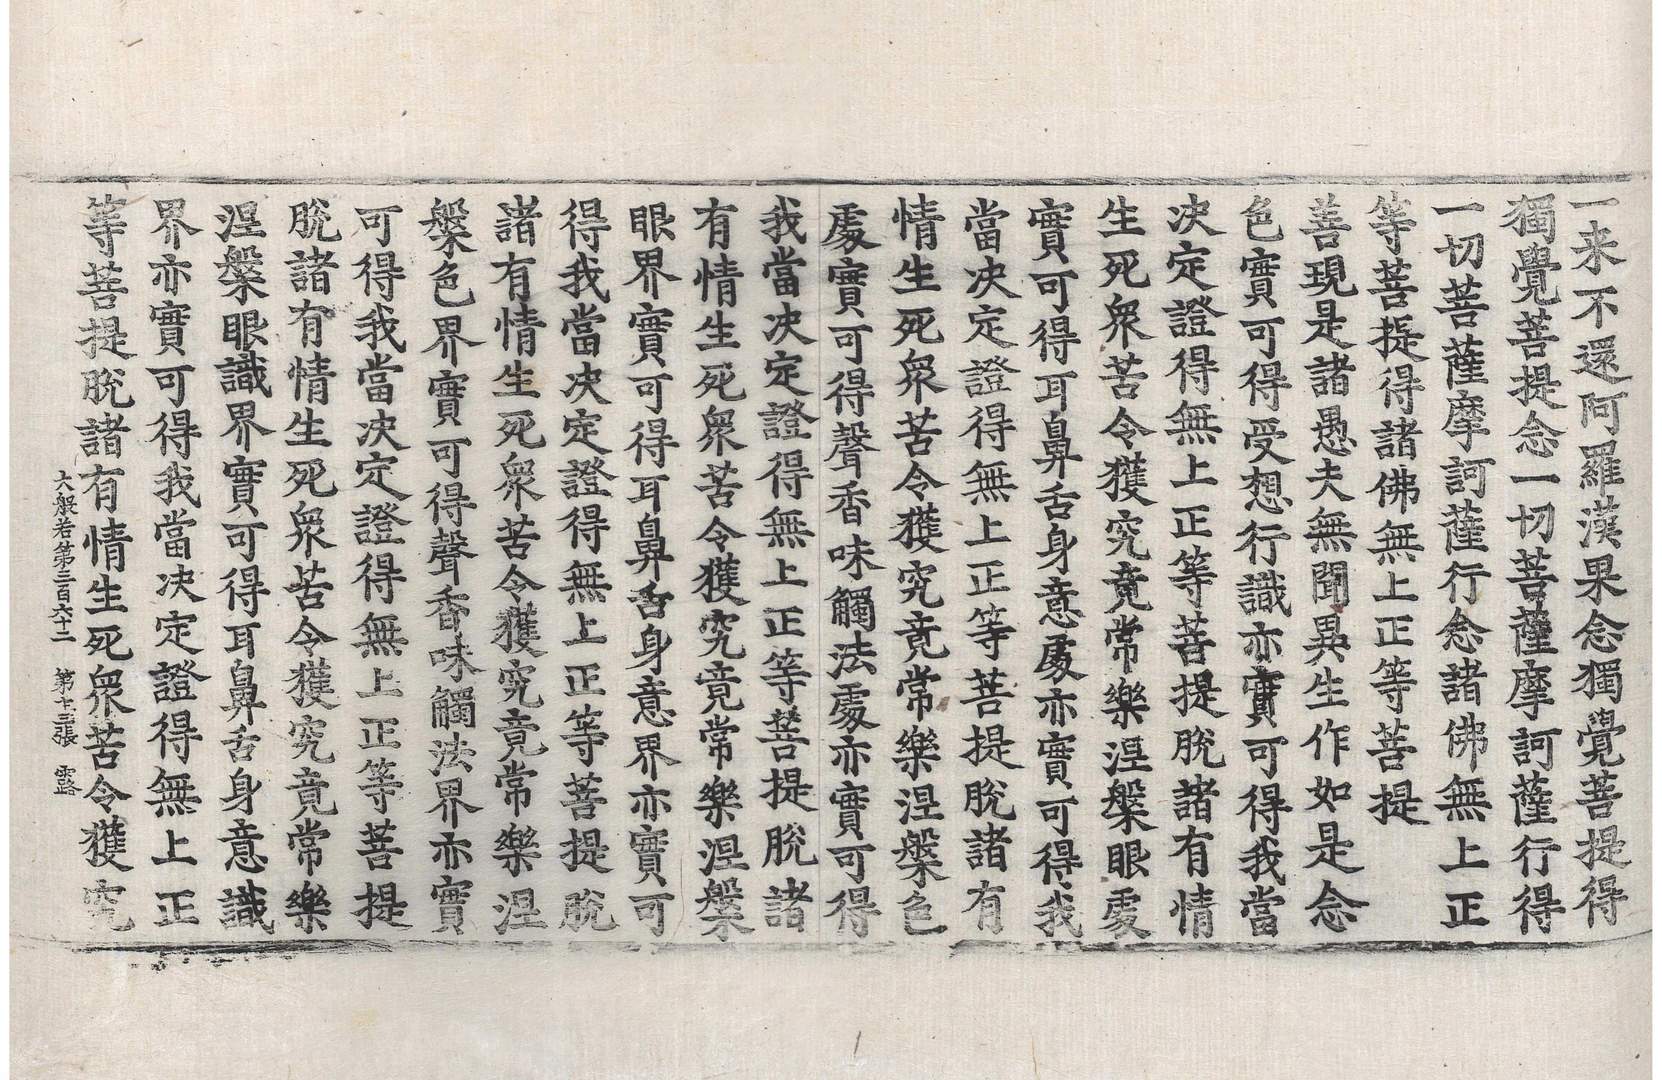 一来不還阿羅漢果念獨覺菩提得
獨覺菩提念一切菩薩摩訶薩行得
一切菩薩摩訶薩行念諸佛無上正
等菩提得諸佛無上正等菩提
善現是諸愚夫無聞異生作如是念
色實可得受想行識亦實可得我當
决定證得無上正等菩提脫諸有情
生死衆苦令獲究竟常樂涅槃眼處
實可得耳鼻舌身意處亦實可得我
當决定證得無上正等菩提脫諸有
情生死衆苦令獲究竟常樂涅槃色
處實可得聲香味觸法處亦實可得
我當决定證得無上正等菩提脫諸
有情生死衆苦令獲究竟常樂涅槃
眼界實可得耳鼻舌身意界亦實可
得我當决定證得無上正等菩提脫
諸有情生死衆苦令獲究竟常樂涅
槃色界實可得聲香味觸法界亦實
可得我當决定證得無上正等菩提
脫諸有情生死衆苦令獲究竟常樂
涅槃眼識界實可得耳鼻舌身意識
界亦實可得我當决定證得無上正
等菩提脫諸有情生死衆苦令獲究
大般若第三百六十二 第十三張 露